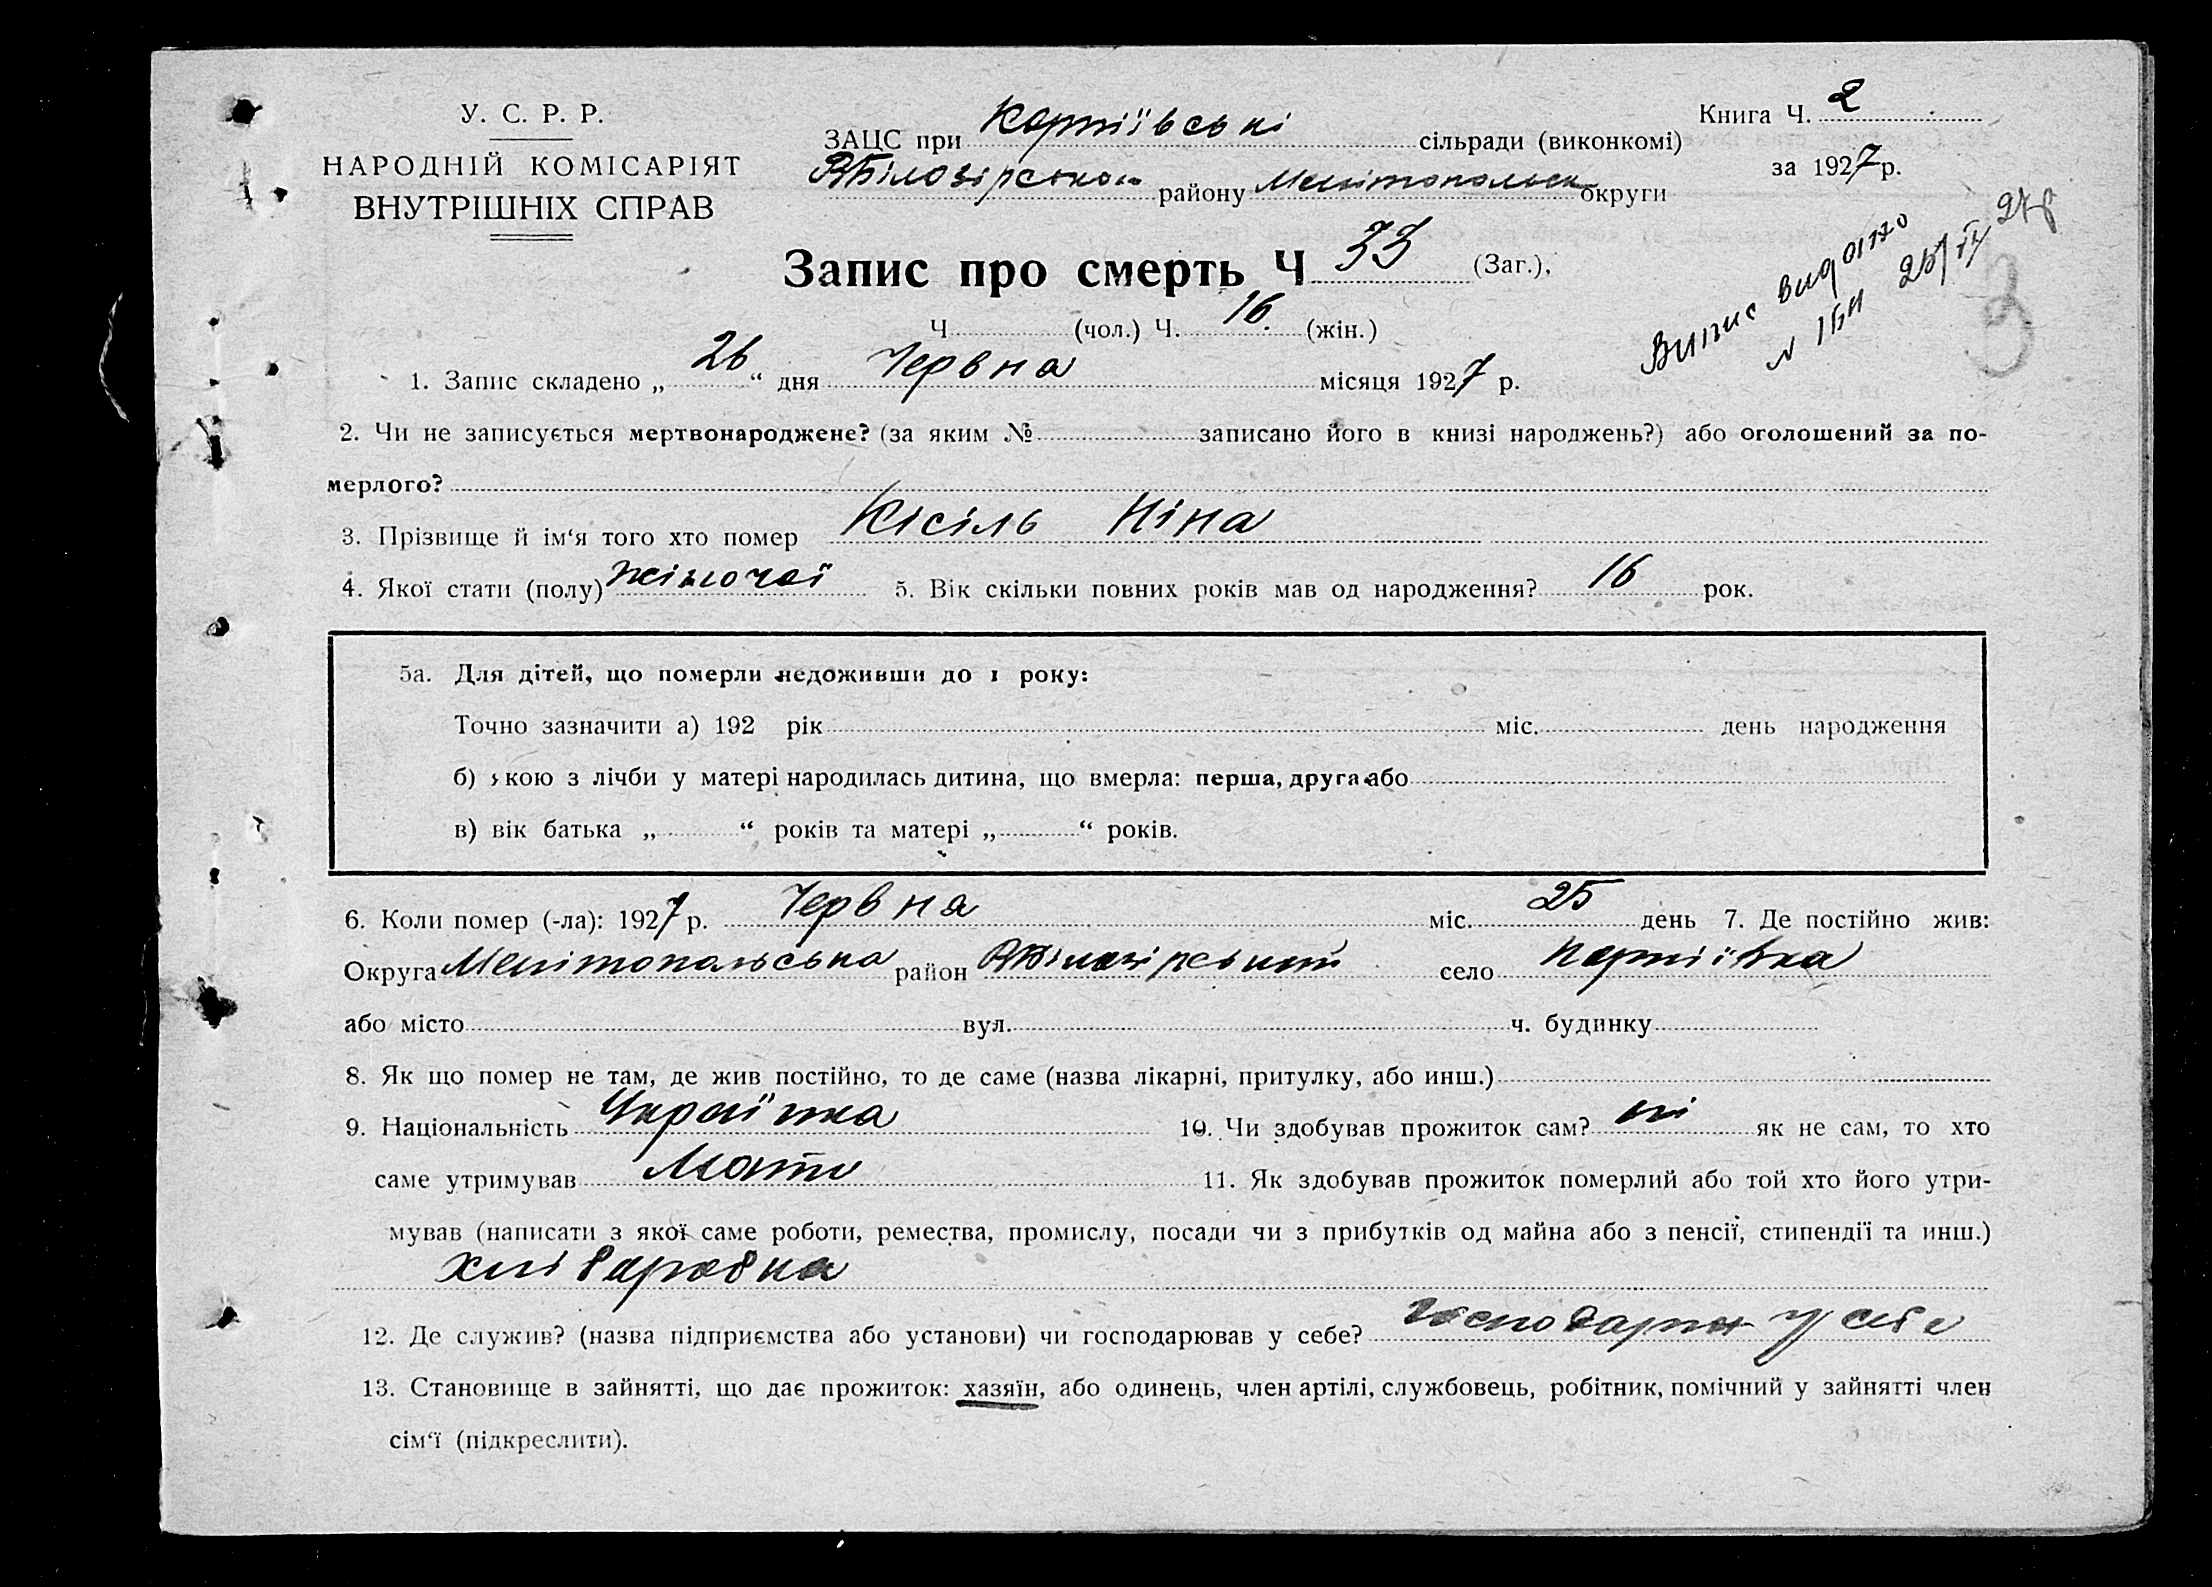 У. С. Р. Р.
НАРОДНІЙ КОМІСАРІЯТ
ВНУТРІШНІХ СПРАВ
ЗАЦС при сільради (виконкомі)
району Мелітопольськ округи
Книга Ч. 2
за 1927 р.
Випис видано
25/IX 27р
Запис про смерть Ч 33 (Заг.),
Ч (чол.) Ч. 16. (жін.)
1. Запис складено „ 26 “ дня Червня місяця 1927 р.
2. Чи не записується мертвонароджене? (за яким № записано його в книзі народжень?) або оголошений за по-
мерлого?
3. Прізвище й ім‘я того хто помер Кісіль Ніна
4. Якої стати (полу) жіночої 5. Вік скільки повних років мав од народження? 16 рок.
5а. Для дітей, що померли недоживши до 1 року:
Точно зазначити а) 192 рік міс. день народження
б) якою з лічби у матері народилась дитина, що вмерла: перша, друга або
в) вік батька „ “ років та матері „ “ років.
6. Коли помер (-ла): 1927 р. Червня міс. 25 день 7. Де постійно жив:
Округа Мелітопольська район село
або місто вул. ч. будинку
8. Як що помер не там, де жив постійно, то де саме (назва лікарні, притулку, або инш.)
9. Національність Українка 10. Чи здобував прожиток сам? ні як не сам, то хто
саме утримував Мати 11. Як здобував прожиток померлий або той хто його утри-
мував (написати з якої саме роботи, ремества, промислу, посади чи з прибутків од майна або з пенсії, стипендії та инш.)
хліборобка
12. Де служив? (назва підприємства або установи) чи господарював у себе? у себе
13. Становище в зайнятті, що дає прожиток: хазяїн, або одинець, член артілі, службовець, робітник, помічний у зайнятті член
сім‘ї (підкреслити).